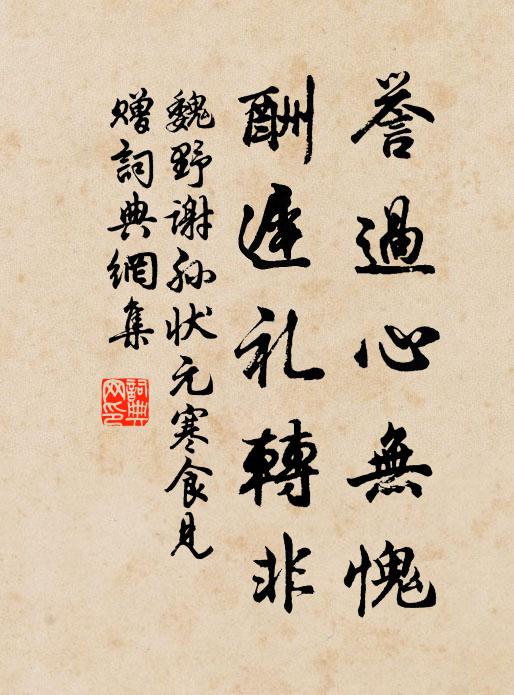 誉過心無愧
酬遲礼轉非
魏野謝孙状元寒食見
贈詞典網集
詞典网印